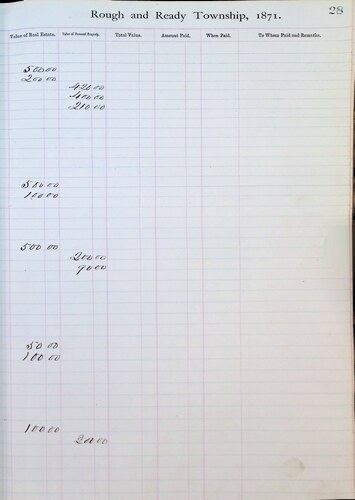 Rough and Ready Township, 1871. 28
Value of Real Estate. Value of Personal Property. Total Value. Amount Paid. When Paid. To Whom Paid and Remarks.
500 00
200 00
420 00
400 00
210 00
500 00
100 00
500 00
200 00
90 00
50 00
100 00
100 00
200 00